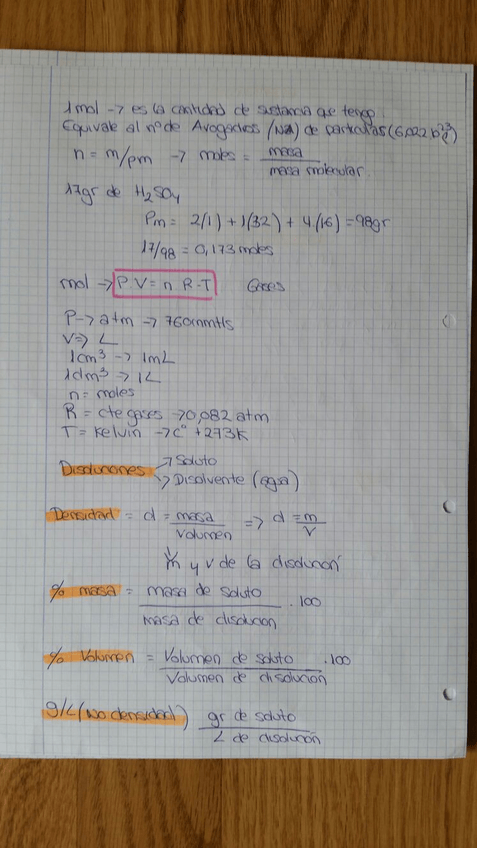 1 mol -> es la cantidad de sustancia que tengo
Equivale al nº de Avogadros (NA) de particulas (6,022·10²³)
n = m/pm -> moles = masa / masa molecular
17gr de H₂SO₄
Pm = 2(1) + 1(32) + 4(16) = 98gr
17/98 = 0,173 moles
mol -> P·V = n·R·T Gases
P -> atm -> 760mmHs
V => L
1cm³ -> 1mL
1dm³ -> 1L
n = moles
R = cte gases -> 0,082 atm
T = Kelvin -> Cº + 273K
Disoluciones -> Soluto
-> Disolvente (agua)
Densidad = d = masa / volumen => d = m / V
m y v de la disolución
% masa = masa de soluto / masa de disolucion · 100
% Volumen = Volumen de soluto / Volumen de disolución · 100
g/L (no densidad) gr de soluto / L de disolución